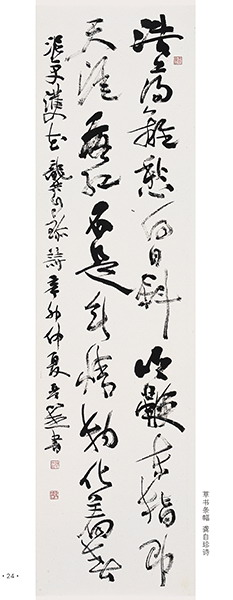 浩荡離愁白日斜吟鞭東指即
天涯落紅不是無情物化作春
泥更護花龔自珍詩辛卯仲夏書
草书条幅 龚自珍诗
·24·